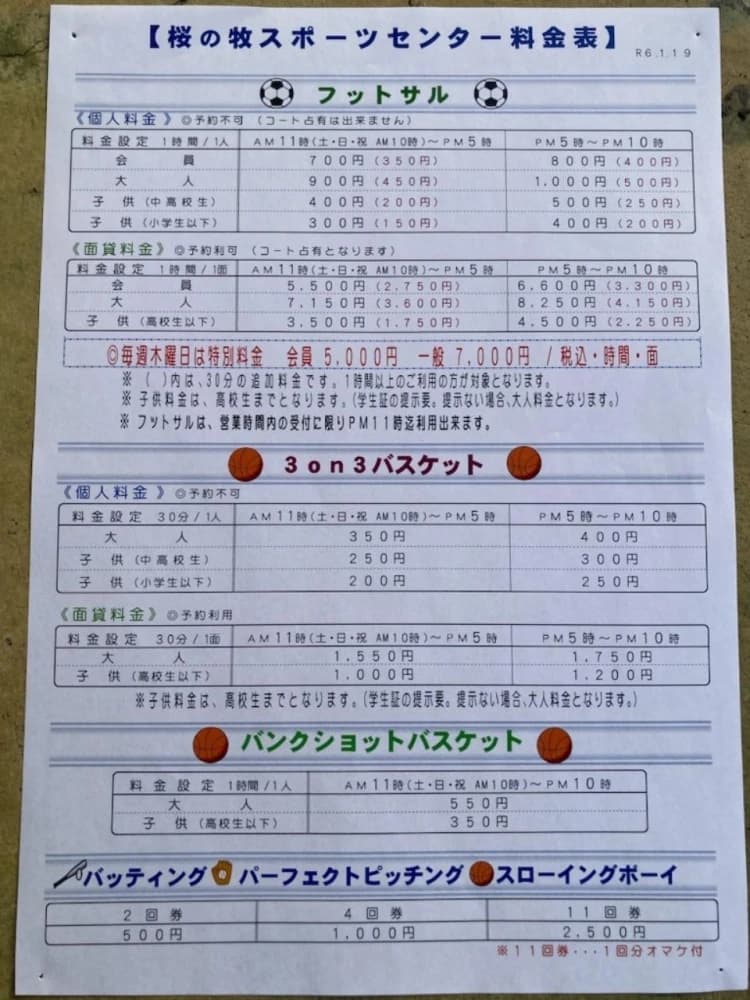 【桜の牧スポーツセンター料金表】
R6.1.19
フットサル
《個人料金》◎予約不可 (コート占有は出来ません)
料金設定 1時間/1人 AM11時(土・日・祝 AM10時)～PM5時 PM5時～PM10時
会員 700円(350円) 800円(400円)
大人 900円(450円) 1.000円(500円)
子供(中高校生) 400円(200円) 500円(250円)
子供(小学生以下) 300円(150円) 400円(200円)
《面貸料金》◎予約利可 (コート占有となります)
料金設定 1時間/1面 AM11時(土・日・祝 AM10時)～PM5時 PM5時～PM10時
会員 5.500円(2.750円) 6.600円(3.300円)
大人 7.150円(3.600円) 8.250円(4.150円)
子供(高校生以下) 3.500円(1.750円) 4.500円(2.250円)
◎毎週木曜日は特別料金 会員 5,000円 一般 7,000円 / 税込・時間・面
※ ( )内は、30分の追加料金です。1時間以上のご利用の方が対象となります。
※ 子供料金は、高校生までとなります。(学生証の提示要。提示ない場合、大人料金となります。)
※ フットサルは、営業時間内の受付に限りPM11時迄利用出来ます。
3on3バスケット
《個人料金》◎予約不可
料金設定 30分/1人 AM11時(土・日・祝 AM10時)～PM5時 PM5時～PM10時
大人 350円 400円
子供(中高校生) 250円 300円
子供(小学生以下) 200円 250円
《面貸料金》◎予約利用
料金設定 30分/1面 AM11時(土・日・祝 AM10時)～PM5時 PM5時～PM10時
大人 1.550円 1.750円
子供(高校生以下) 1.000円 1.200円
※子供料金は、高校生までとなります。(学生証の提示要。提示ない場合、大人料金となります。)
バンクショットバスケット
料金設定 1時間/1人 AM11時(土・日・祝 AM10時)～PM10時
大人 550円
子供(高校生以下) 350円
バッティング パーフェクトピッチング スローイングボーイ
2回券 4回券 11回券
500円 1,000円 2,500円
※11回券・・・1回分オマケ付